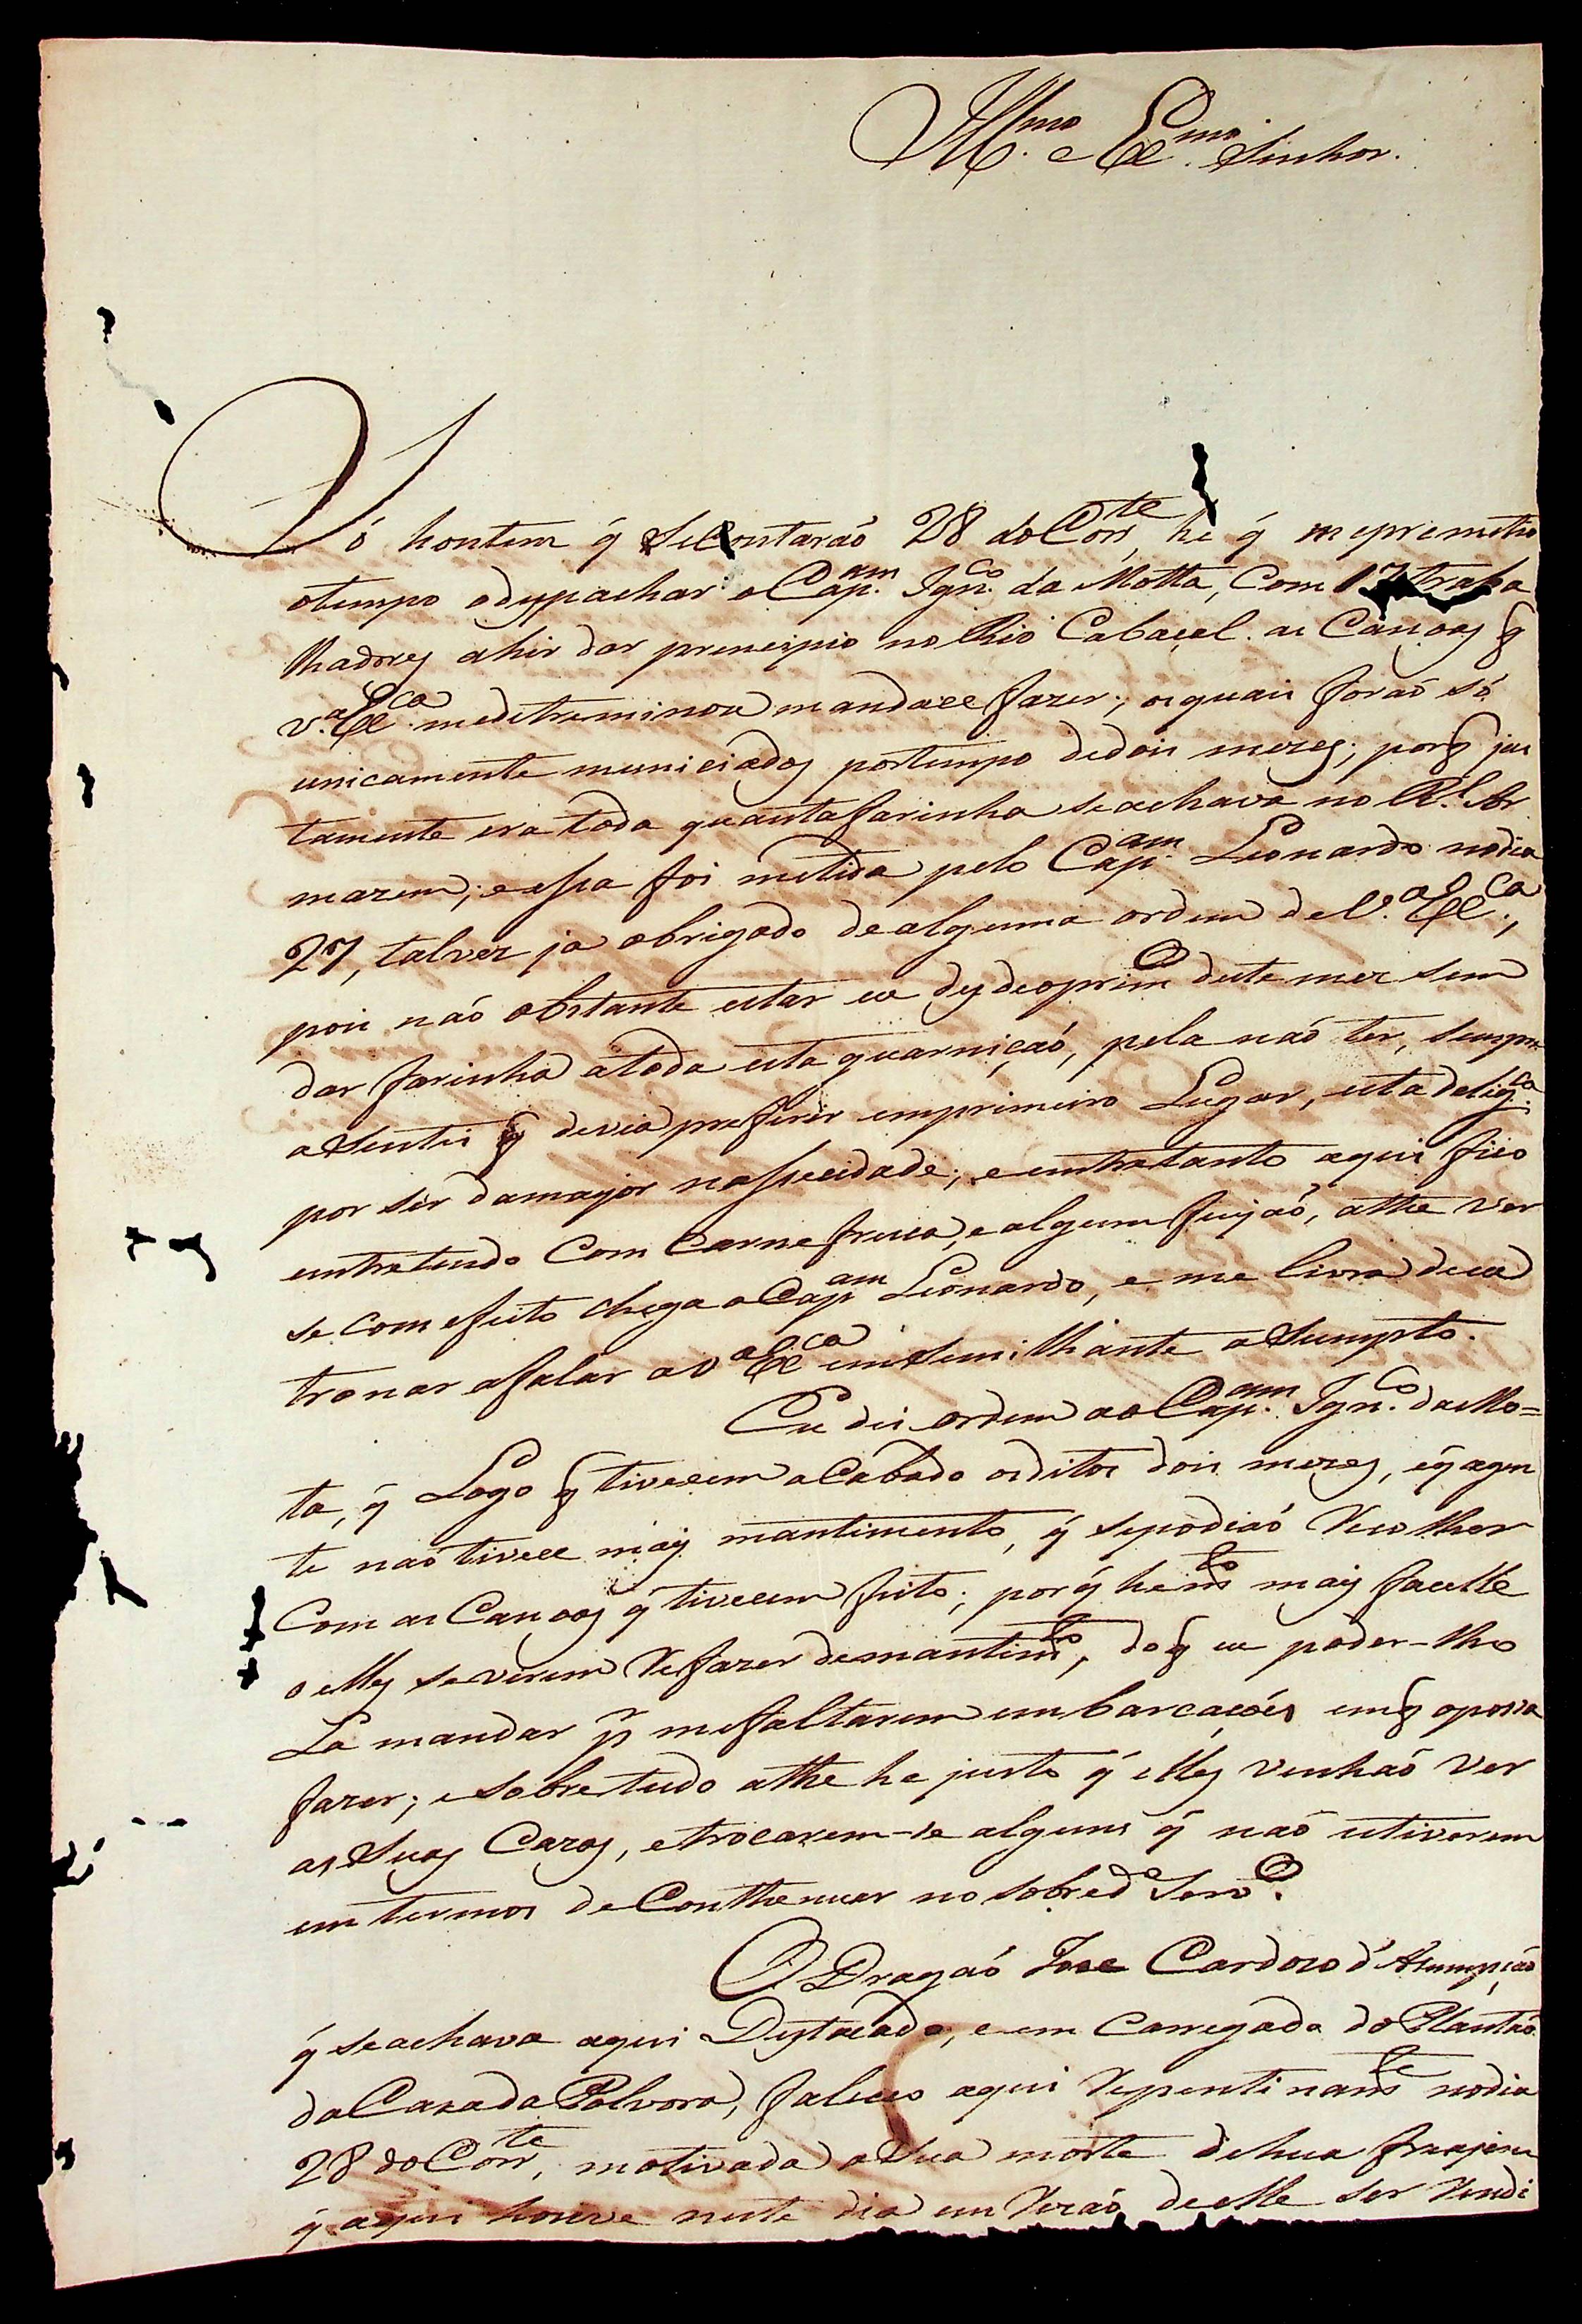 Ill.mo e Ex.mo Senhor.
Só hontem q̃ Secontaraó 28 do Corr.te, he q̃ mepremetio
otempo odespachar o Cap.am Ign.co da Motta, Com 17 traba
lhadores ahir dar principio no Rio Cabaçal as Canoas q̃
V.a Ex.ca medetreminou mandace fazer; os quais foraó só
unicamente municiados portempo dedois mezes; porq̃ jus
tamente era toda quanta farinha seachava no R.l Ar
mazem; e essa foi metida pelo Cap.am Leonardo nodia
27, talvez ja obrigado dealguma ordem de V.a Ex.ca,
pois naó obstante estar eu desdeoprim.o deste mez sem
dar farinha atoda esta guarniçaó, pela naó ter, sempre
aSentei q̃ devia preferir emprimeiro Lugar, esta delig.ca
por ser damayor nessecidade; e entretanto aqui fico
entretendo Com Carne fresca, e algum feijaó, athe ver
se com efeito chega o Cap.am Leonardo, e me livra deeu
tronar afalar a V.a Ex.ca em Semilhante aSumpto.
Eu dei ordem ao Cap.am Ign.co daMo=
ta, q̃ Logo q̃ tivecem aCabado osditos dois mezes, eq̃ agen
te naó tivece mais mantimento, q̃ sepodiaó Recolher
Com as Canoas q̃ tivecem feito; porq̃ hem.to mais facelle
o elles sevirem Refazer demantim.to, doq̃ eu poder-lho
La mandar p.r mefaltarem embarcaçoés emq̃ opossa
fazer; e sobretudo athe he justo q̃ elles venhaó ver
as Suas Cazas, etrocarem-se alguns q̃ naó estiverem
em termos de Conthenuar no sobred.o Serv.o.
O Dragaó Joze Cardozo d'Asumpçaó
q̃ seachava aqui Destacado, e em Carregado do Plantaó
da Caza da Polvora, faleceo aqui Repentinam.te nodia
28 do Corr.te, motivada aSua morte dehua
q̃ aqui houve neste dia em Rezaó deelle ser Rendi